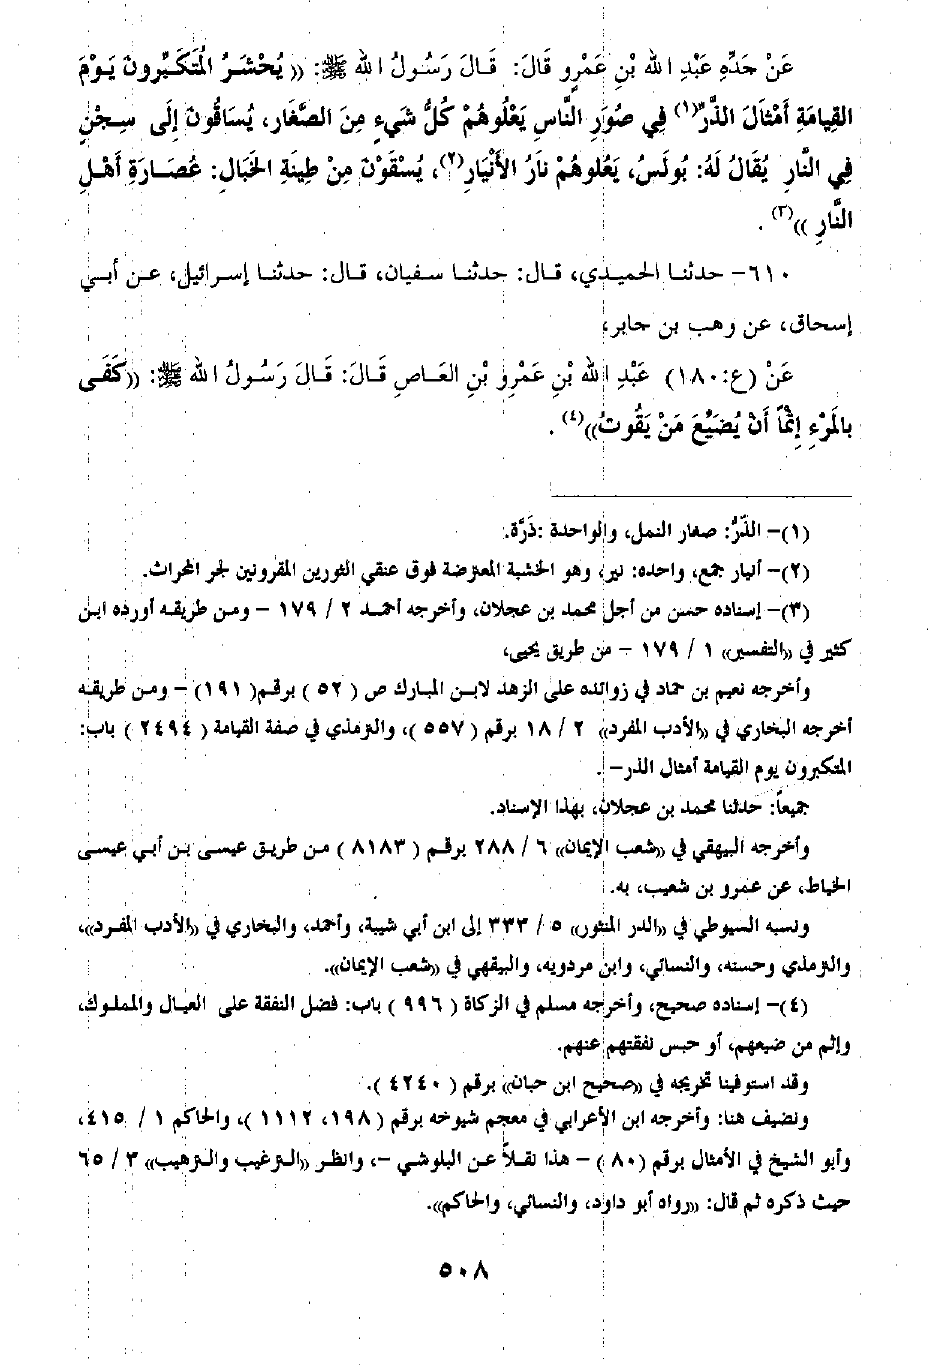 عَنْ جَدِّهِ عَبْدِ اللهِ بْنِ عَمْرٍو قَالَ: قَالَ رَسُولُ اللهِ ﷺ: «يُحْشَرُ الْمُتَكَبِّرونَ يَوْمَ
القِيامَةِ أَمْثالَ الذَّرِّ(١) فِي صُوَرِ النَّاسِ يَعْلُوهُمْ كُلُّ شَيءٍ مِنَ الصَّغَارِ، يُسَاقُونَ إِلَى سِجْنٍ
فِي النَّارِ يُقَالُ لَهُ: بُولَسُ، يَعْلوهُمْ نَارُ الأَنْيَارِ(٢)، يُسْقَوْنَ مِنْ طِينَةِ الخَبَالِ: عُصَارَةِ أَهْلِ
النَّارِ»(٣).
٦١٠- حدثنا الحميدي، قال: حدثنا سفيان، قال: حدثنا إسرائيل، عن أبي
إسحاق، عن وهب بن جابر،
عَنْ (ع:١٨٠) عَبْدِ اللهِ بْنِ عَمْرِو بْنِ العَاصِ قَالَ: قَالَ رَسُولُ اللهِ ﷺ: «كَفَى
بالْمَرْءِ إِثْمًا أَنْ يُضَيِّعَ مَنْ يَقُوتُ»(٤).
(١)- الذَّرُّ: صغار النمل، والواحدة :ذَرَّة.
(٢)- أنيار جمع، واحده: نير، وهو الخشبة المعترضة فوق عنقي الثورين المقرونين لجر المحراث.
(٣)- إسناده حسن من أجل محمد بن عجلان، وأخرجه أحمد ٢ / ١٧٩ - ومن طريقه أورده ابن
كثير في «التفسير» ١ / ١٧٩ - من طريق يحيى،
وأخرجه نعيم بن حماد في زوائده على الزهد لابن المبارك ص ( ٥٢ ) برقم( ١٩١) - ومن طريقه
أخرجه البخاري في «الأدب المفرد» ٢ / ١٨ برقم ( ٥٥٧ )، والترمذي في صفة القيامة ( ٢٤٩٤ ) باب:
المتكبرون يوم القيامة أمثال الذر- .
جميعاً: حدثنا محمد بن عجلان، بهذا الإسناد.
وأخرجه البيهقي في «شعب الإيمان» ٦ / ٢٨٨ برقم ( ٨١٨٣ ) من طريق عيسى بن أبي عيسى
الخياط، عن عمرو بن شعيب، به.
ونسبه السيوطي في «الدر المنثور» ٥ / ٣٣٣ إلى ابن أبي شيبة، وأحمد، والبخاري في «الأدب المفرد»،
والترمذي وحسنه، والنسائي، وابن مردويه، والبيقهي في «شعب الإيمان».
(٤)- إسناده صحيح، وأخرجه مسلم في الزكاة ( ٩٩٦ ) باب: فضل النفقة على العيال والمملوك،
وإثم من ضيعهم، أو حبس نفقتهم عنهم.
وقد استوفينا تخريجه في «صحيح ابن حبان» برقم ( ٤٢٤٠ ).
ونضيف هنا: وأخرجه ابن الأعرابي في معجم شيوخه برقم ( ١٩٨، ١١١٢ )، والحاكم ١ / ٤١٥،
وأبو الشيخ في الأمثال برقم (٨٠) - هذا نقلاً عن البلوشي -، وانظر «الترغيب والترهيب» ٣ / ٦٥
حيث ذكره ثم قال: «رواه أبو داود، والنسائي، والحاكم».
٥٠٨